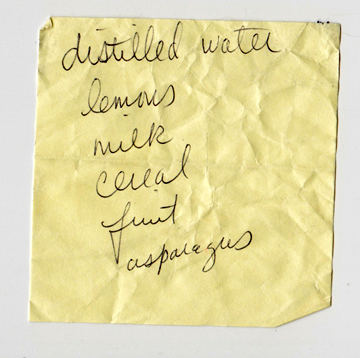 distilled water
lemons
milk
cereal
fruit
asparagus